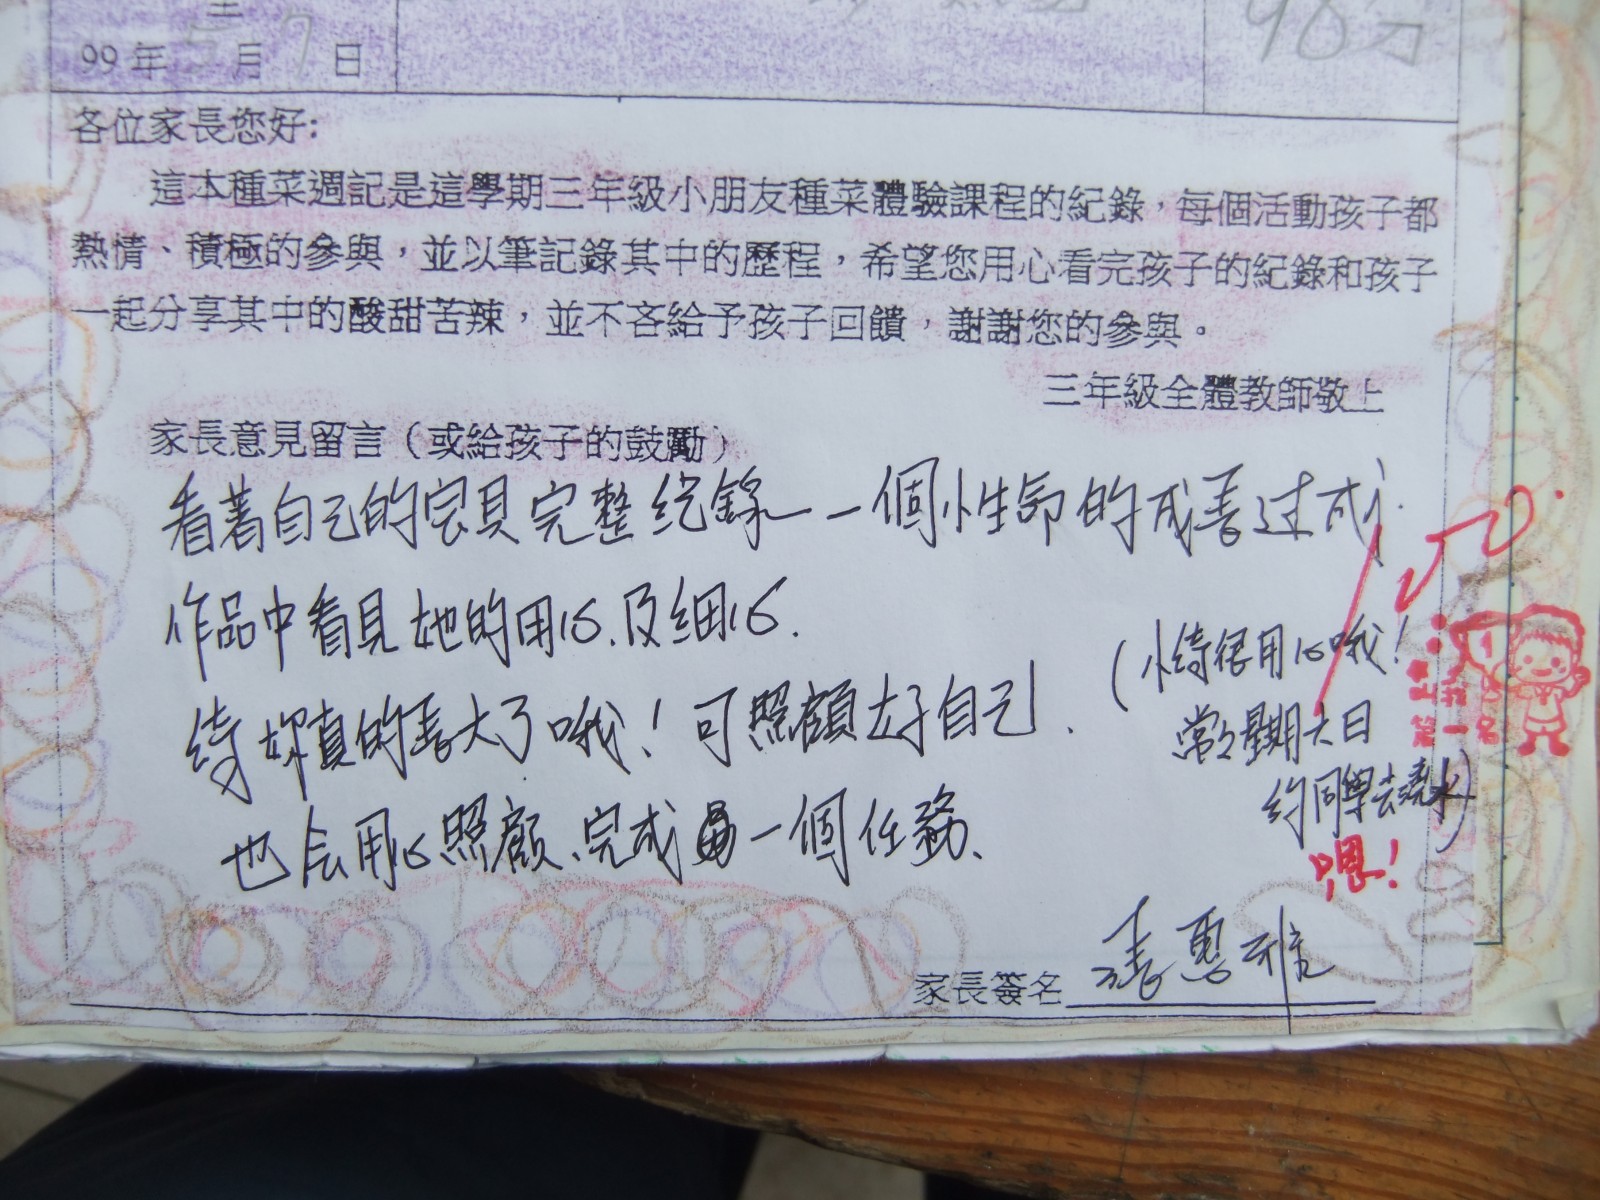 99年5月7日
98分
各位家長您好:
這本種菜週記是這學期三年級小朋友種菜體驗課程的紀錄，每個活動孩子都
熱情、積極的參與，並以筆記錄其中的歷程，希望您用心看完孩子的紀錄和孩子
一起分享其中的酸甜苦辣，並不吝給予孩子回饋，謝謝您的參與。
三年級全體教師敬上
家長意見留言（或給孩子的鼓勵）
看著自己的宝貝完整紀錄一個小生命的成長过成.
作品中看見她的用心.及细心.
綺妳真的長大了哦!可照顧好自己.
也会用心照顧、完成每一個任務、
(小綺很用心哦!
常之星期六日
約同學去澆水)
嗯!
第一名
家長簽名 張惠雅